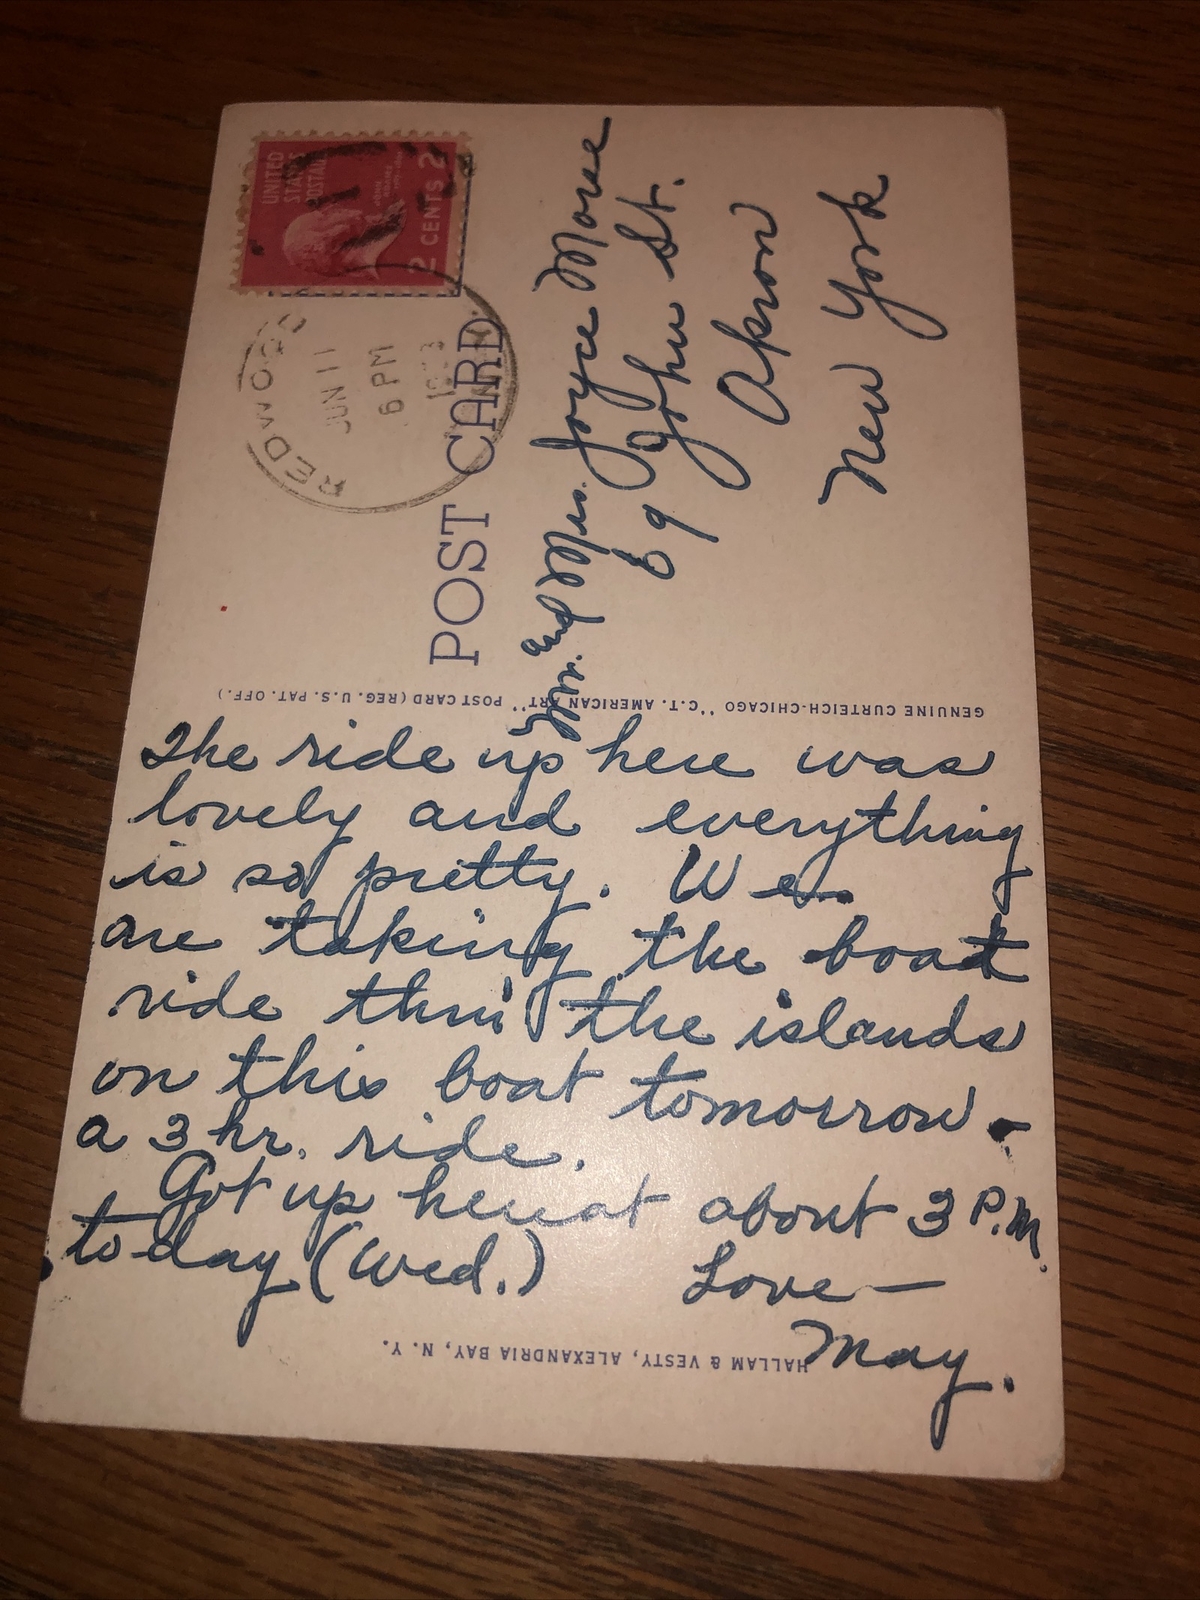 UNITED
STATES
POSTAGE
2 CENTS 2
REDWOOD
JUN 11
6 PM
POST CARD
Mr. and Mrs. Joyce Morse
69 John St.
Akron
New York
GENUINE CURTEICH-CHICAGO "C.T. AMERICAN ART" POST CARD (REG. U.S. PAT. OFF.)
The ride up here was
lovely and everything
is so pretty. We
are taking the boat
ride thru the islands
on this boat tomorrow -
a 3 hr. ride.
Got up here at about 3 P.M.
today (Wed.) Love —
May.
HALLAM & VESTY, ALEXANDRIA BAY, N. Y.